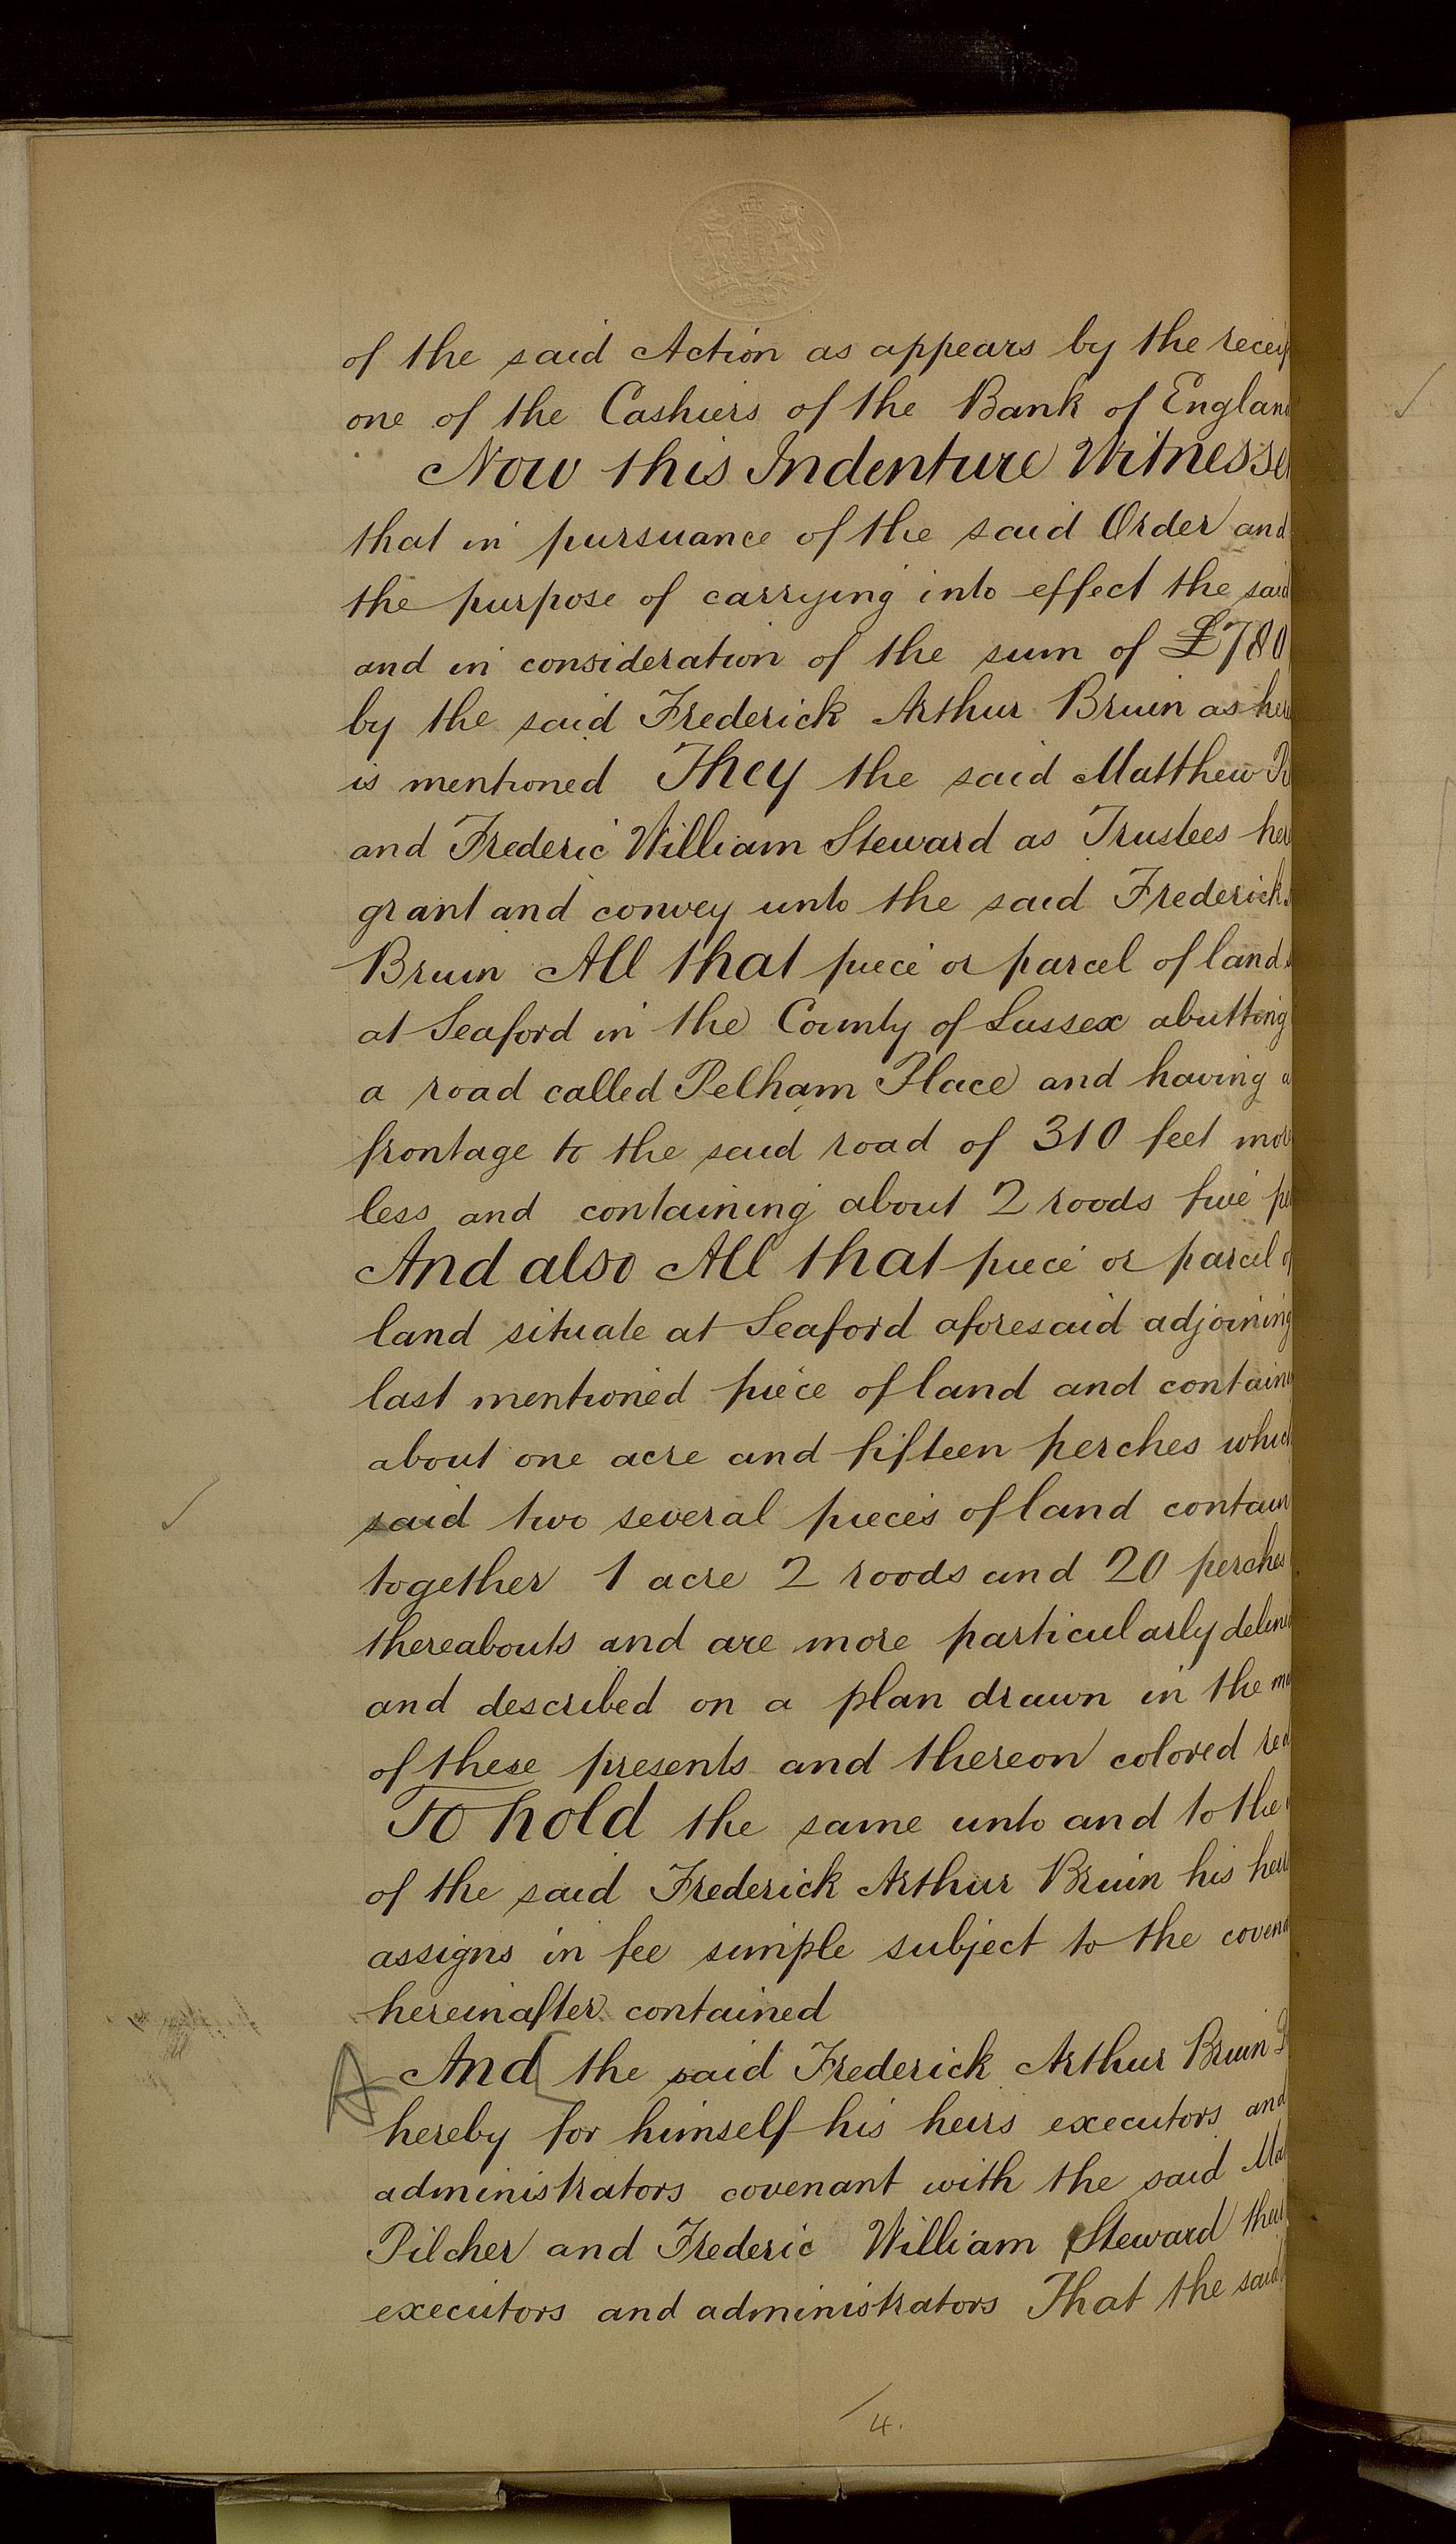 of the said Action as appears by the receip
one of the Cashiers of the Bank of Englan
Now this Indenture Witnesse
that in pursuance of the said Order and
the purpose of carrying into effect the said
and in consideration of the sum of £780
by the said Frederick Arthur Bruin as here
is mentioned They the said Matthew Pi
and Frederic William Steward as Trustees her
grant and convey unto the said Frederick
Bruin All that piece or parcel of land
at Seaford in the County of Sussex abutting
a road called Pelham Place and having a
frontage to the said road of 310 feet mor
less and containing about 2 roods five pe
And also All that piece or parcel of
land situate at Seaford aforesaid adjoining
last mentioned piece of land and containi
about one acre and fifteen perches which
said two several pieces of land contain
together 1 acre 2 roods and 20 perches
thereabouts and are more particularly deline
and described on a plan drawn in the ma
of these presents and thereon colored red
To hold the same unto and to the
of the said Frederick Arthur Bruin his heirs
assigns in fee simple subject to the covena
hereinafter contained
A And [ the said Frederick Arthur Bruin
hereby for himself his heirs executors and
administrators covenant with the said Mat
Pilcher and Frederic William Steward their
executors and administrators That the said
4.